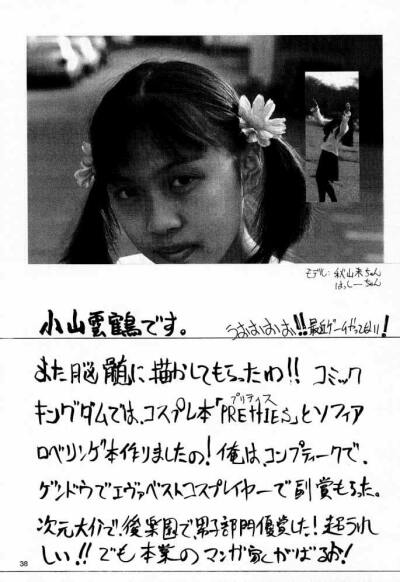 モデル：秋山未ちゃん
はっしーちゃん
小山雲鶴です。
うおはははお!!最近ゲームやってばい!
また脳髄に描かしてもらったわ!! コミック
キングダムでは、コスプレ本「PRETTIES」とソフィア
プリティス
ロベリンゲ本作りましたの! 俺は、コンプティークで、
ゲンドウでエヴァベストコスプレイヤーで副賞もらった。
次元大介で、後楽園で男子部門優賞した! 超うれ
しい!! でも本業のマンガ家でがばるお!
38